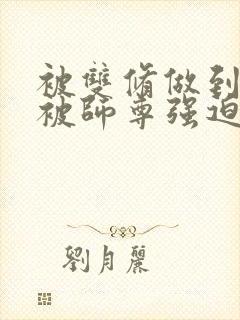 被雙脩做到
被師尊强迫
劉月麗